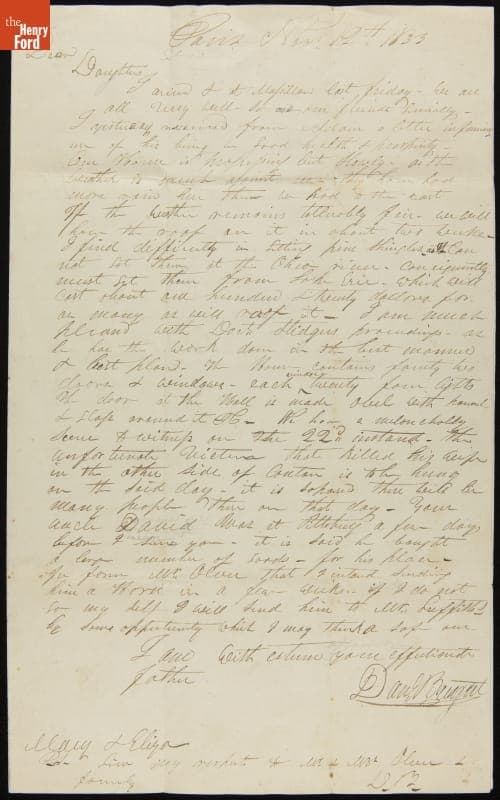 the
Henry
Ford
Paris Nov. 12th 1833
Dear
Daughters
I arrived at Massillon last friday - we are
all very well - so are our friends
I yesterday received from Adam a letter informing
me of his being in good health &
Our House is progressing but slowly - as the
weather is much against us - they have had
more rain here than we had to the east
If the weather remains tolerably fair - we will
have the roof on it in about two weeks -
I find difficulty in getting pine shingles - Can
not get them at the Ohio river - Consequently
must get them from Lake Erie - which will
cost about one hundred & twenty dollars for
as many as will roof it - I am much
pleased with Doct proceedings - as
he has the work done in the best manner
& best plan - the House contains
doors & windows - each window twenty four lights
The door at the Hall is made
& Glass around it &c - We have a melancholy
scene to witness on the 22nd instant - the
unfortunate victim that killed his wife
in the other side of Canton is to be hung
on the said day - it is supposed there will be
many people there on that day - Your
uncle David was at Pittsburg a few days
before I saw you - it is said he bought
a large number of goods - for his place -
Inform Mr. Olever that I intend sending
him a Horse in a few weeks - if I do not
go my self I will send him to Mr.
by some opportunity which I may think a safe one
I am with esteem your affectionate
father
Mary & Eliza
Give my respects to Mr & Mrs &
family
D. B.